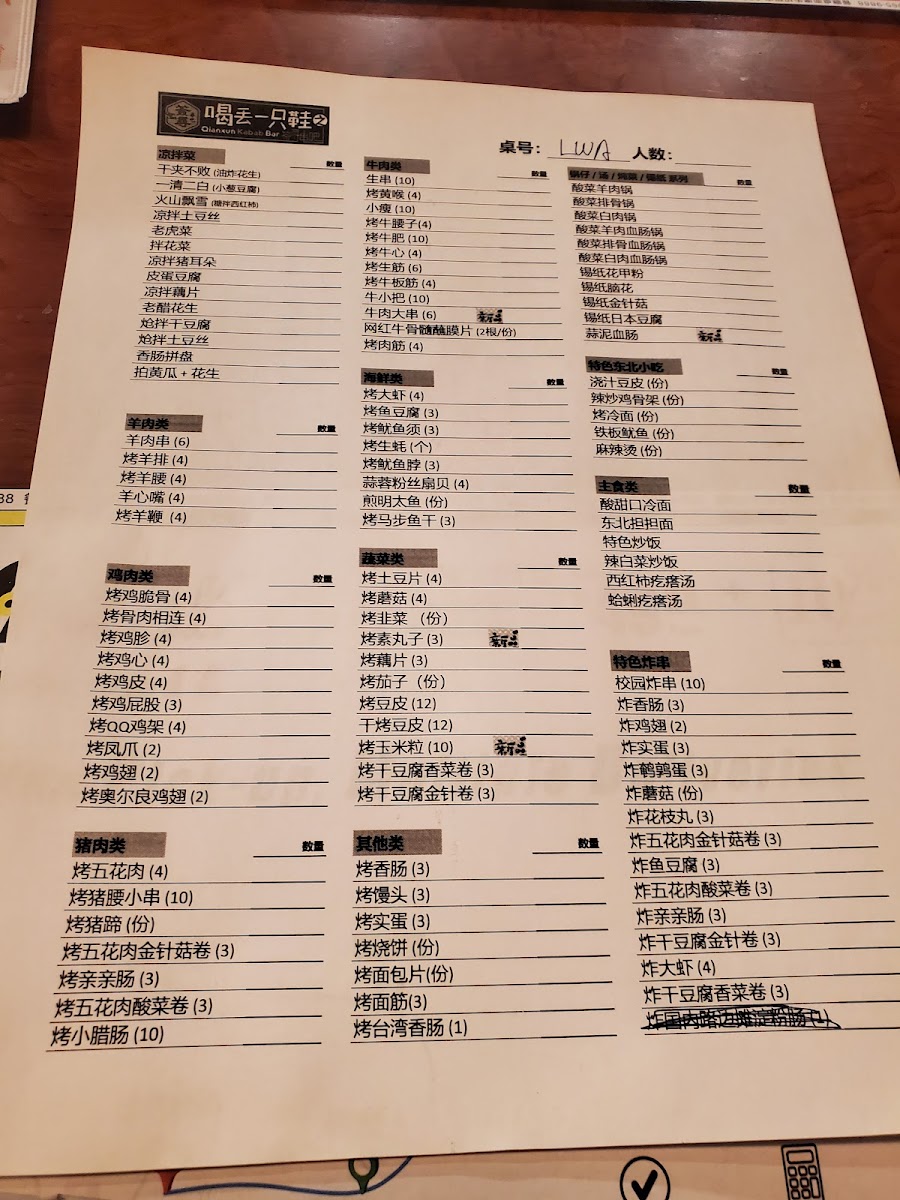 喝丢一只鞋之
Qianxun Kabab Bar
桌号: LWA 人数:
凉拌菜 数量
干夹不败 (油炸花生)
一清二白 (小葱豆腐)
火山飘雪 (糖拌西红柿)
凉拌土豆丝
老虎菜
拌花菜
凉拌猪耳朵
皮蛋豆腐
凉拌藕片
老醋花生
炝拌干豆腐
炝拌土豆丝
香肠拼盘
拍黄瓜 + 花生
羊肉类 数量
羊肉串 (6)
烤羊排 (4)
烤羊腰 (4)
羊心嘴 (4)
烤羊鞭 (4)
鸡肉类 数量
烤鸡脆骨 (4)
烤骨肉相连 (4)
烤鸡胗 (4)
烤鸡心 (4)
烤鸡皮 (4)
烤鸡屁股 (3)
烤QQ鸡架 (4)
烤凤爪 (2)
烤鸡翅 (2)
烤奥尔良鸡翅 (2)
猪肉类 数量
烤五花肉 (4)
烤猪腰小串 (10)
烤猪蹄 (份)
烤五花肉金针菇卷 (3)
烤亲亲肠 (3)
烤五花肉酸菜卷 (3)
烤小腊肠 (10)
牛肉类 数量
生串 (10)
烤黄喉 (4)
小瘦 (10)
烤牛腰子(4)
烤牛肥 (10)
烤牛心 (4)
烤生筋 (6)
烤牛板筋 (4)
牛小把 (10)
牛肉大串 (6) 新品
网红牛骨髓蘸膜片 (2根/份)
烤肉筋 (4)
海鲜类 数量
烤大虾 (4)
烤鱼豆腐 (3)
烤鱿鱼须 (3)
烤生蚝 (个)
烤鱿鱼脖 (3)
蒜蓉粉丝扇贝 (4)
煎明太鱼 (份)
烤马步鱼干 (3)
蔬菜类 数量
烤土豆片 (4)
烤蘑菇 (4)
烤韭菜 (份)
烤素丸子 (3) 新品
烤藕片 (3)
烤茄子 (份)
烤豆皮 (12)
干烤豆皮 (12)
烤玉米粒 (10) 新品
烤干豆腐香菜卷 (3)
烤干豆腐金针卷 (3)
其他类 数量
烤香肠 (3)
烤馒头 (3)
烤实蛋 (3)
烤烧饼 (份)
烤面包片(份)
烤面筋(3)
烤台湾香肠 (1)
锅仔 / 汤 / 炖菜 / 锡纸 系列 数量
酸菜羊肉锅
酸菜排骨锅
酸菜白肉锅
酸菜羊肉血肠锅
酸菜排骨血肠锅
酸菜白肉血肠锅
锡纸花甲粉
锡纸脑花
锡纸金针菇
锡纸日本豆腐
蒜泥血肠 新品
特色东北小吃 数量
浇汁豆皮 (份)
辣炒鸡骨架 (份)
烤冷面 (份)
铁板鱿鱼 (份)
麻辣烫 (份)
主食类 数量
酸甜口冷面
东北担担面
特色炒饭
辣白菜炒饭
西红柿疙瘩汤
蛤蜊疙瘩汤
特色炸串 数量
校园炸串 (10)
炸香肠 (3)
炸鸡翅 (2)
炸实蛋 (3)
炸鹌鹑蛋 (3)
炸蘑菇 (份)
炸花枝丸 (3)
炸五花肉金针菇卷 (3)
炸鱼豆腐 (3)
炸五花肉酸菜卷 (3)
炸亲亲肠 (3)
炸干豆腐金针卷 (3)
炸大虾 (4)
炸干豆腐香菜卷 (3)
炸国内路边摊淀粉肠 (1)